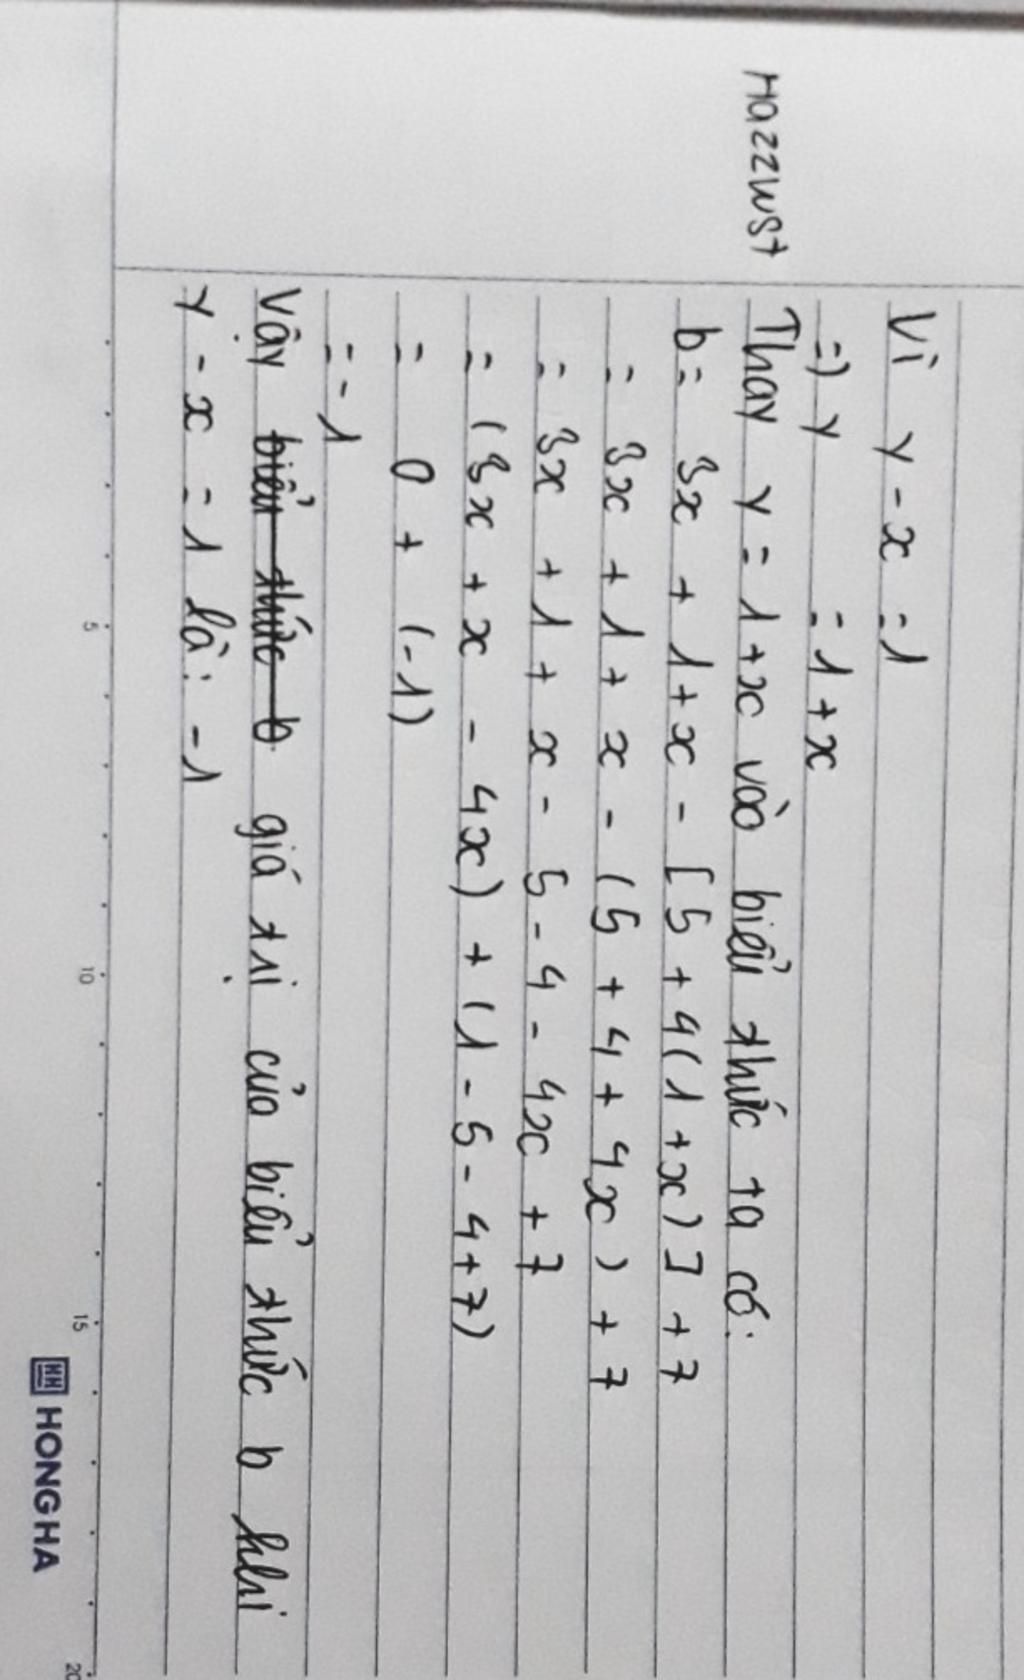 Hazzwst
Vì y - x = 1
=) y = 1 + x
Thay y = 1 + x vào biểu thức ta có:
b = 3x + 1 + x - [5 + 4(1 + x)] + 7
= 3x + 1 + x - (5 + 4 + 4x) + 7
= 3x + 1 + x - 5 - 4 - 4x + 7
= (3x + x - 4x) + (1 - 5 - 4 + 7)
= 0 + (-1)
= -1
Vậy biểu thức b giá trị của biểu thức b khi
y - x = 1 là: -1
5 10 15 20
HH HONG HA